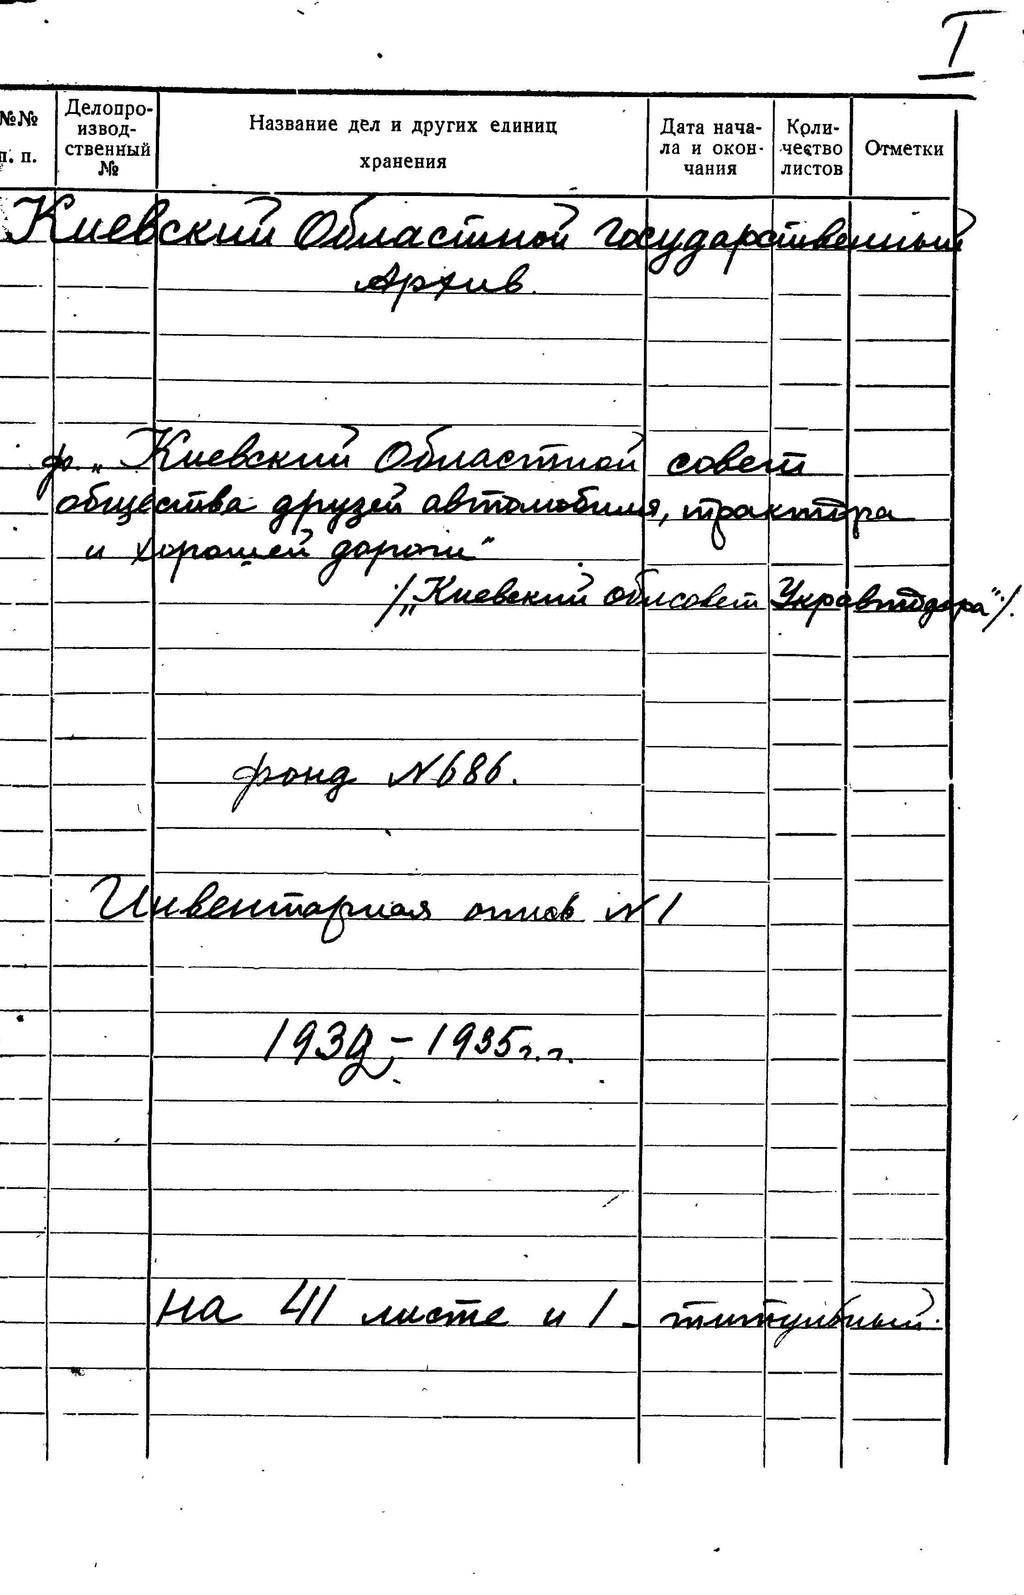 I
№№ п. п.
Делопро-изводственный №
Название дел и других единиц хранения
Дата начала и окончания
Количество листов
Отметки
Киевский Областной государственный
Архив.
ф. „Киевский Областной совет
общества друзей автомобиля, трактора
и хорошей дороги"
/„Киевский облсовет Укравтодора"/.
фонд №686.
Инвентарная опись №1
1932 - 1935 г.г.
на 41 листе и 1 - титульный.